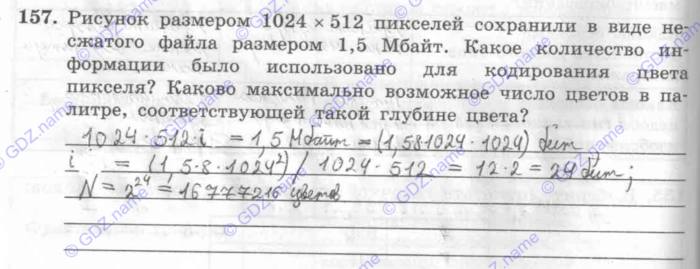 157. Рисунок размером 1024 × 512 пикселей сохранили в виде не-
сжатого файла размером 1,5 Мбайт. Какое количество ин-
формации было использовано для кодирования цвета
пикселя? Каково максимально возможное число цветов в па-
литре, соответствующей такой глубине цвета?
1024 · 512 · i = 1,5 Мбайт = (1,5 8 1024 · 1024) бит
i = (1,5 · 8 · 1024²) / 1024 · 512 = 12 · 2 = 24 бит;
N = 2²⁴ = 16777216 цветов
© GDZ.name